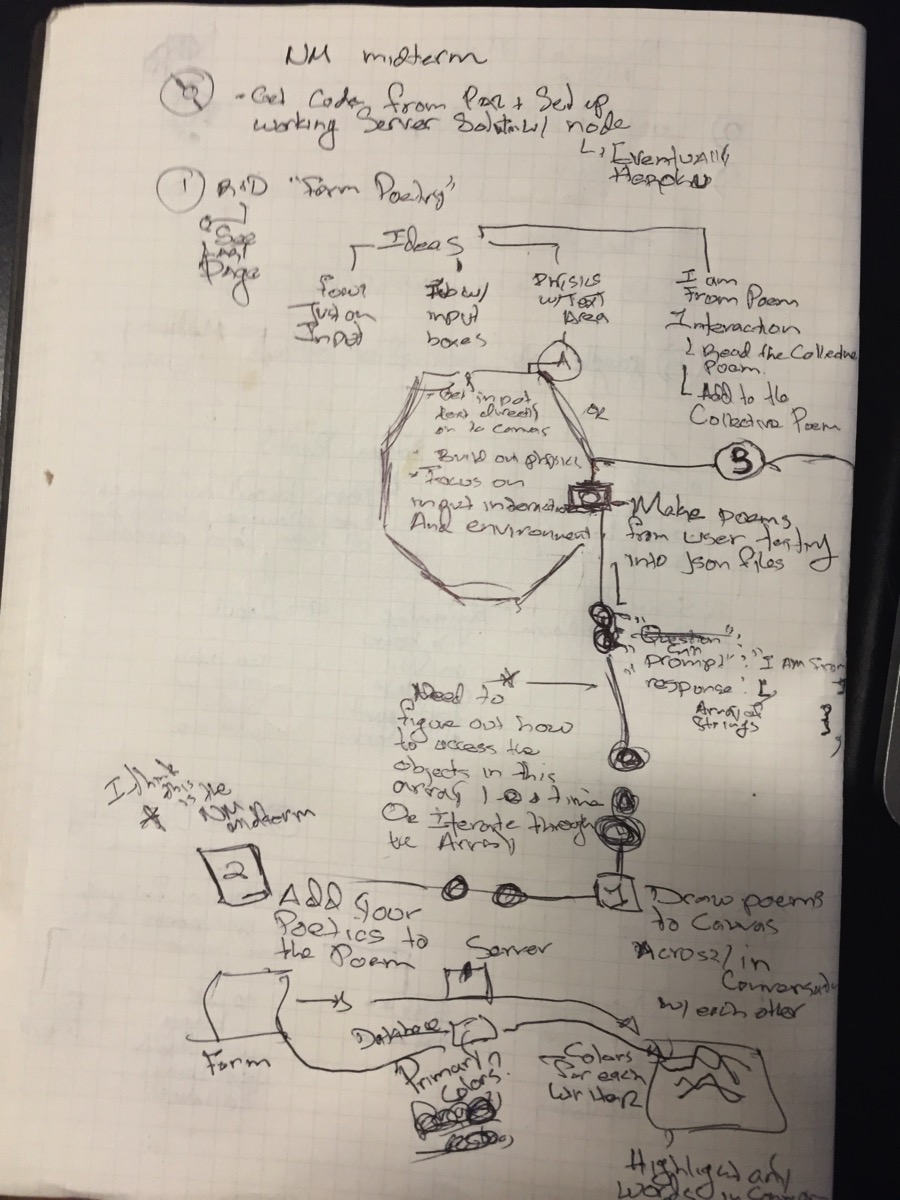 NM midterm
- Get Code from + Set up
working Server Solution w/ node
Eventually
Heroku
① R+D "Form Poetry"
See
Page
Ideas
Form
Just on
Input
w/
input
boxes
Physics
w/ Text
Area
I am
From Poem
Interaction
Read the Collective
Poem.
Add to the
Collective Poem
A
- Get input
text directly
on to canvas
OR
- Build out physics
- Focus on
input interaction
And environment
B
Make poems
from user testing
into Json files
"Question"
"prompt": "I Am From
"response": [
Array of
Strings
* Need to
figure out how
to access the
objects in this
array 1 @ a time
Or Iterate through
the Array
I think
this is the
* NM midterm
2
Add your
Poetics to
the Poem
1
Draw poems
to Canvas
Across/in
w/ each other
Server
Form
Database
Primary
Colors
Colors
for each
writer
Highlight any
words in